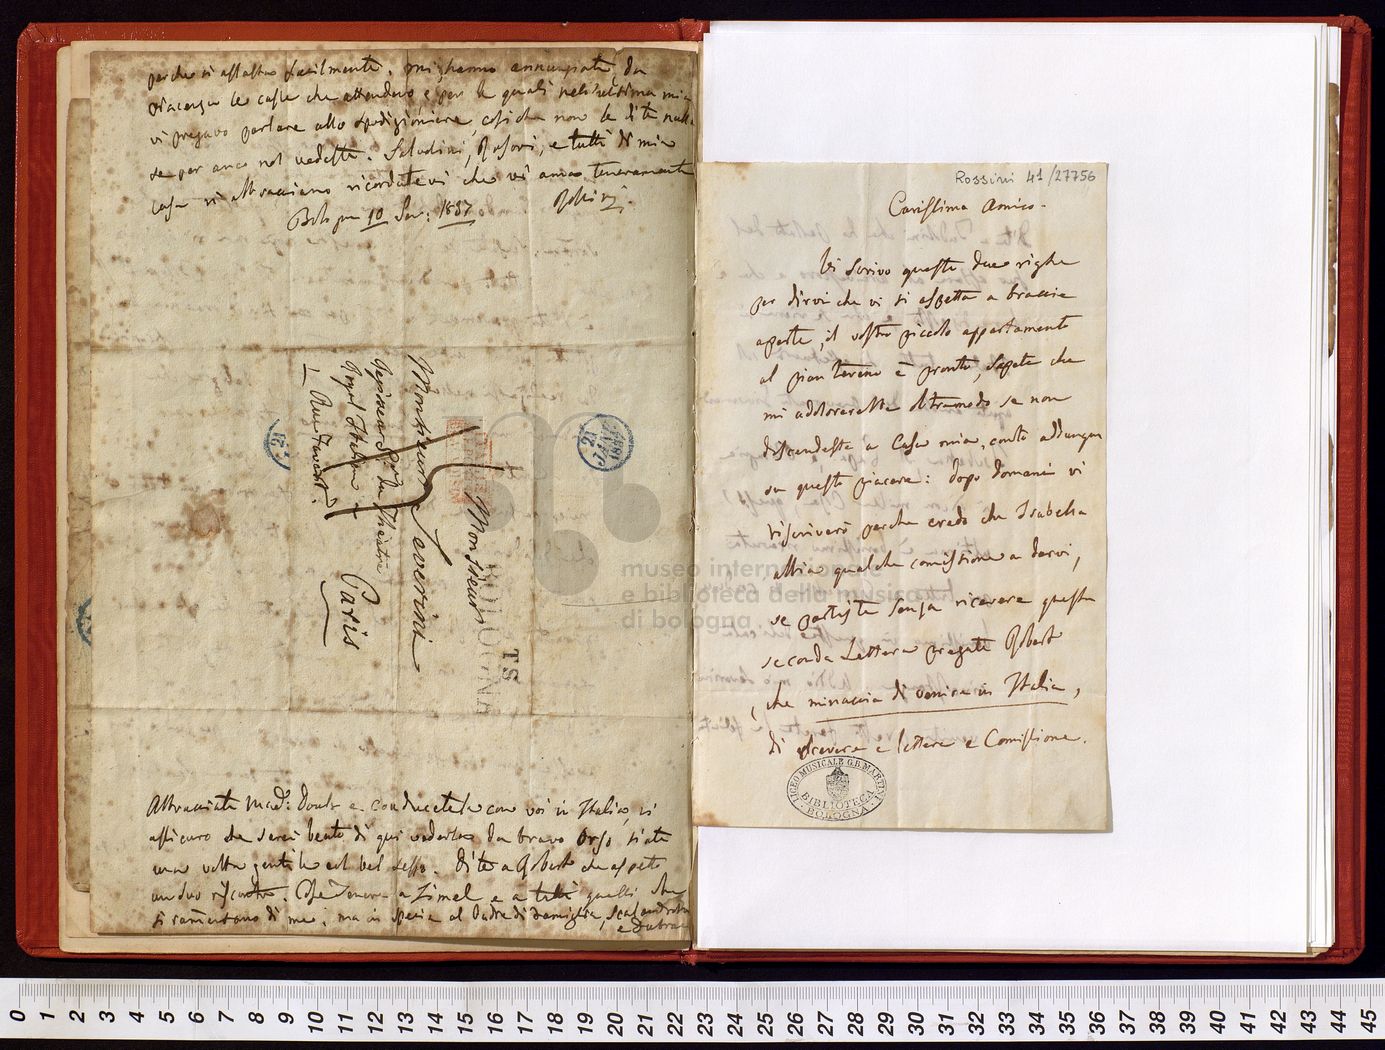 perche si assesta facilmente. mi hanno annunziate da
Piacenza le casse che attendevo, e per le quali nell'ultima mia
vi pregavo parlare allo spedizioniere, cosiche non le dite nulla
se per anco nol vedeste. Saluti, e tutti di mia
casa vi abbracciano ricordatevi che vi amo teneramente
Bologna 10 Gen: 1837 Rossini.
Monsieur
Monsieur Severini
Regisseur du Théatre
Royal Italien
Rue Favart.
Paris
21
JANV
1837
BOLOGNA
Abbracciate Mad: e conducetela con voi in Italia, vi
assicuro che sarei beato di qui vederla da bravo Orso siate
una volta gentile col bel sesso. Dite a Robert che aspetto
un suo riscontro. Cose tenere a Zimel e a tutti quelli che
si ramentano di me, ma in specie al Padre di famiglia,
Rossini 41/27756
Carissimo Amico.
Vi scrivo queste due righe
per dirvi che vi si aspetta a braccia
aperte, il vostro piccolo appartamento
al pian tereno è pronto, sapete che
mi addolorereste oltremodo se non
discendeste a Casa mia, conto addunque
su questo piacere: dopo domani vi
riscriverò perche credo che Isabella
abbia qualche comissione a darvi,
se partiste senza ricevere questa
seconda Lettera pregate Robert
, che minaccia di venire in Italia,
di ricevere e lettere e Comissione.
LICEO MUSICALE G.B. MARTINI
BIBLIOTECA
BOLOGNA
museo internazionale
e biblioteca della musica
di bologna
0 1 2 3 4 5 6 7 8 9 10 11 12 13 14 15 16 17 18 19 20 21 22 23 24 25 26 27 28 29 30 31 32 33 34 35 36 37 38 39 40 41 42 43 44 45